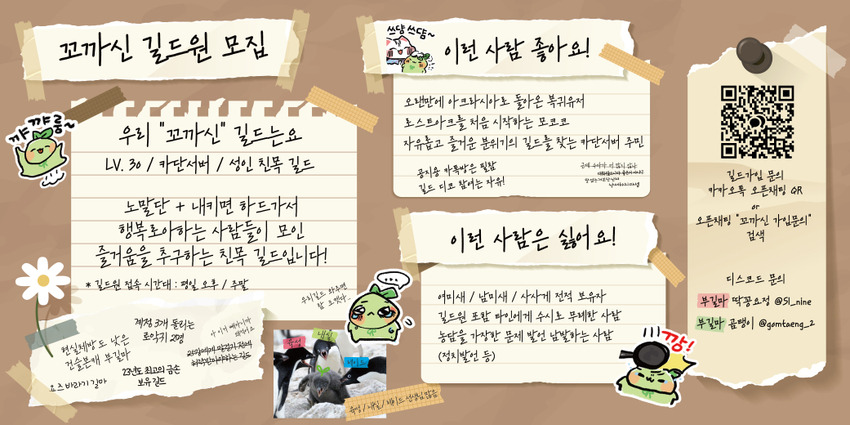 꼬까신 길드원 모집
꺄꺄룽~
우리 "꼬까신" 길드는요
LV. 30 / 카단서버 / 성인 친목 길드
노말단 + 내키면 하드가서
행복로아하는 사람들이 모인
즐거움을 추구하는 친목 길드입니다!
* 길드원 접속 시간대 : 평일 오후 / 주말
현실제방도 낮은
건슬본캐 부길마
요즈바라기 길마
계정 3개 돌리는
로악귀 20명
23년도 최고의 금손
보유길드
우리길드 와주면
안 오겠다..
...
육성
내실
레이드
육성 / 내실 / 레이드 선생님 많음
쓰담쓰담~
이런 사람 좋아요!
오랜만에 아크라시아로 돌아온 복귀유저
로스트아크를 처음 시작하는 모코코
자유롭고 즐거운 분위기의 길드를 찾는 카단서버 주민
공지용 카톡방은 필참
길드 디코 참여는 자유!
이런 사람은 싫어요!
여미새 / 남미새 / 사사게 전적 보유자
길드원 포함 타인에게 수시로 무례한 사람
농담을 가장한 문제 발언 남발하는 사람
(정치발언 등)
깡!
길드가입 문의
카카오톡 오픈채팅 QR
or
오픈채팅 "꼬까신 가입문의"
검색
디스코드 문의
부길마 딱꽁요정 @51_nine
부길마 곰탱이 @gomtaeng_2